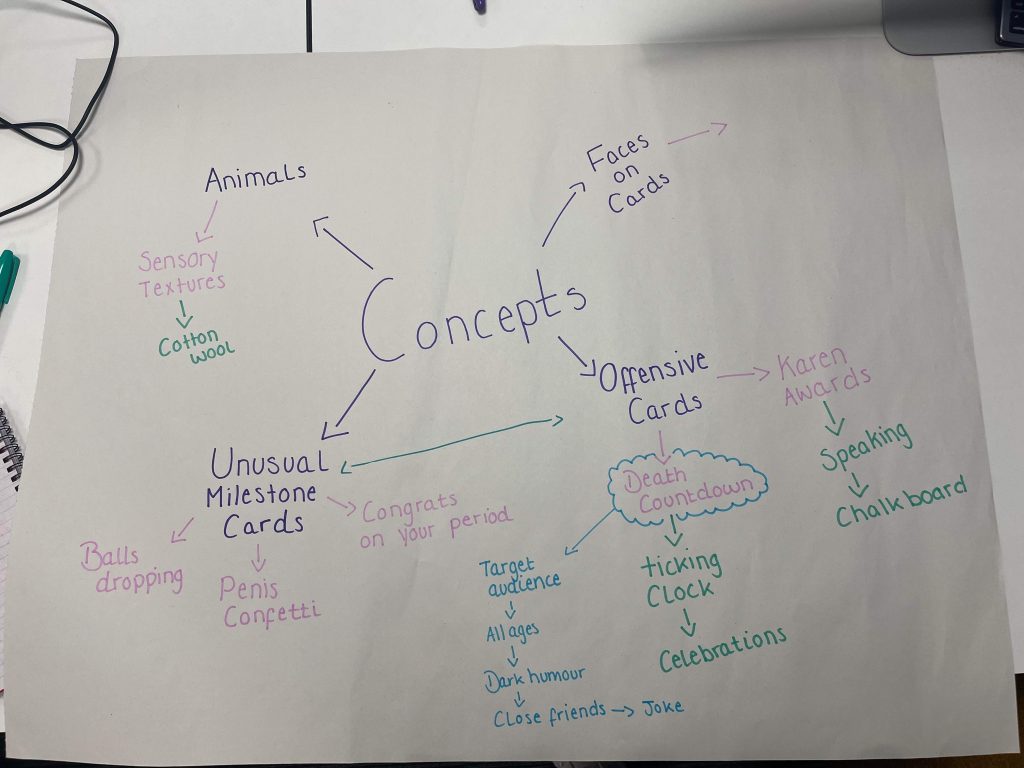 Concepts
Animals
Sensory
Textures
Cotton
wool
Faces
on
Cards
Offensive
Cards
Karen
Awards
Speaking
Chalk board
Death
Countdown
ticking
Clock
Celebrations
Target
audience
All ages
Dark humour
Close friends → Joke
Unusual
Milestone
Cards
Congrats
on your period
Balls
dropping
Penis
Confetti